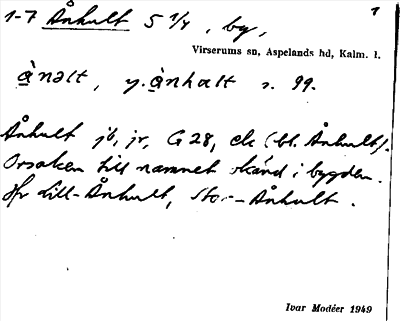 1-7 Ånhult 5 1/4, by, 1
Virserums sn, Aspelands hd, Kalm. l.
å̀nəlt, y. å̀nhalt s. 99.
Ånhult jb, jr, G28, ek (bl. Ånhult).
Orsaken till namnet okänd i bygden.
Jfr Lill-Ånhult, Stor-Ånhult.
Ivar Modéer 1949